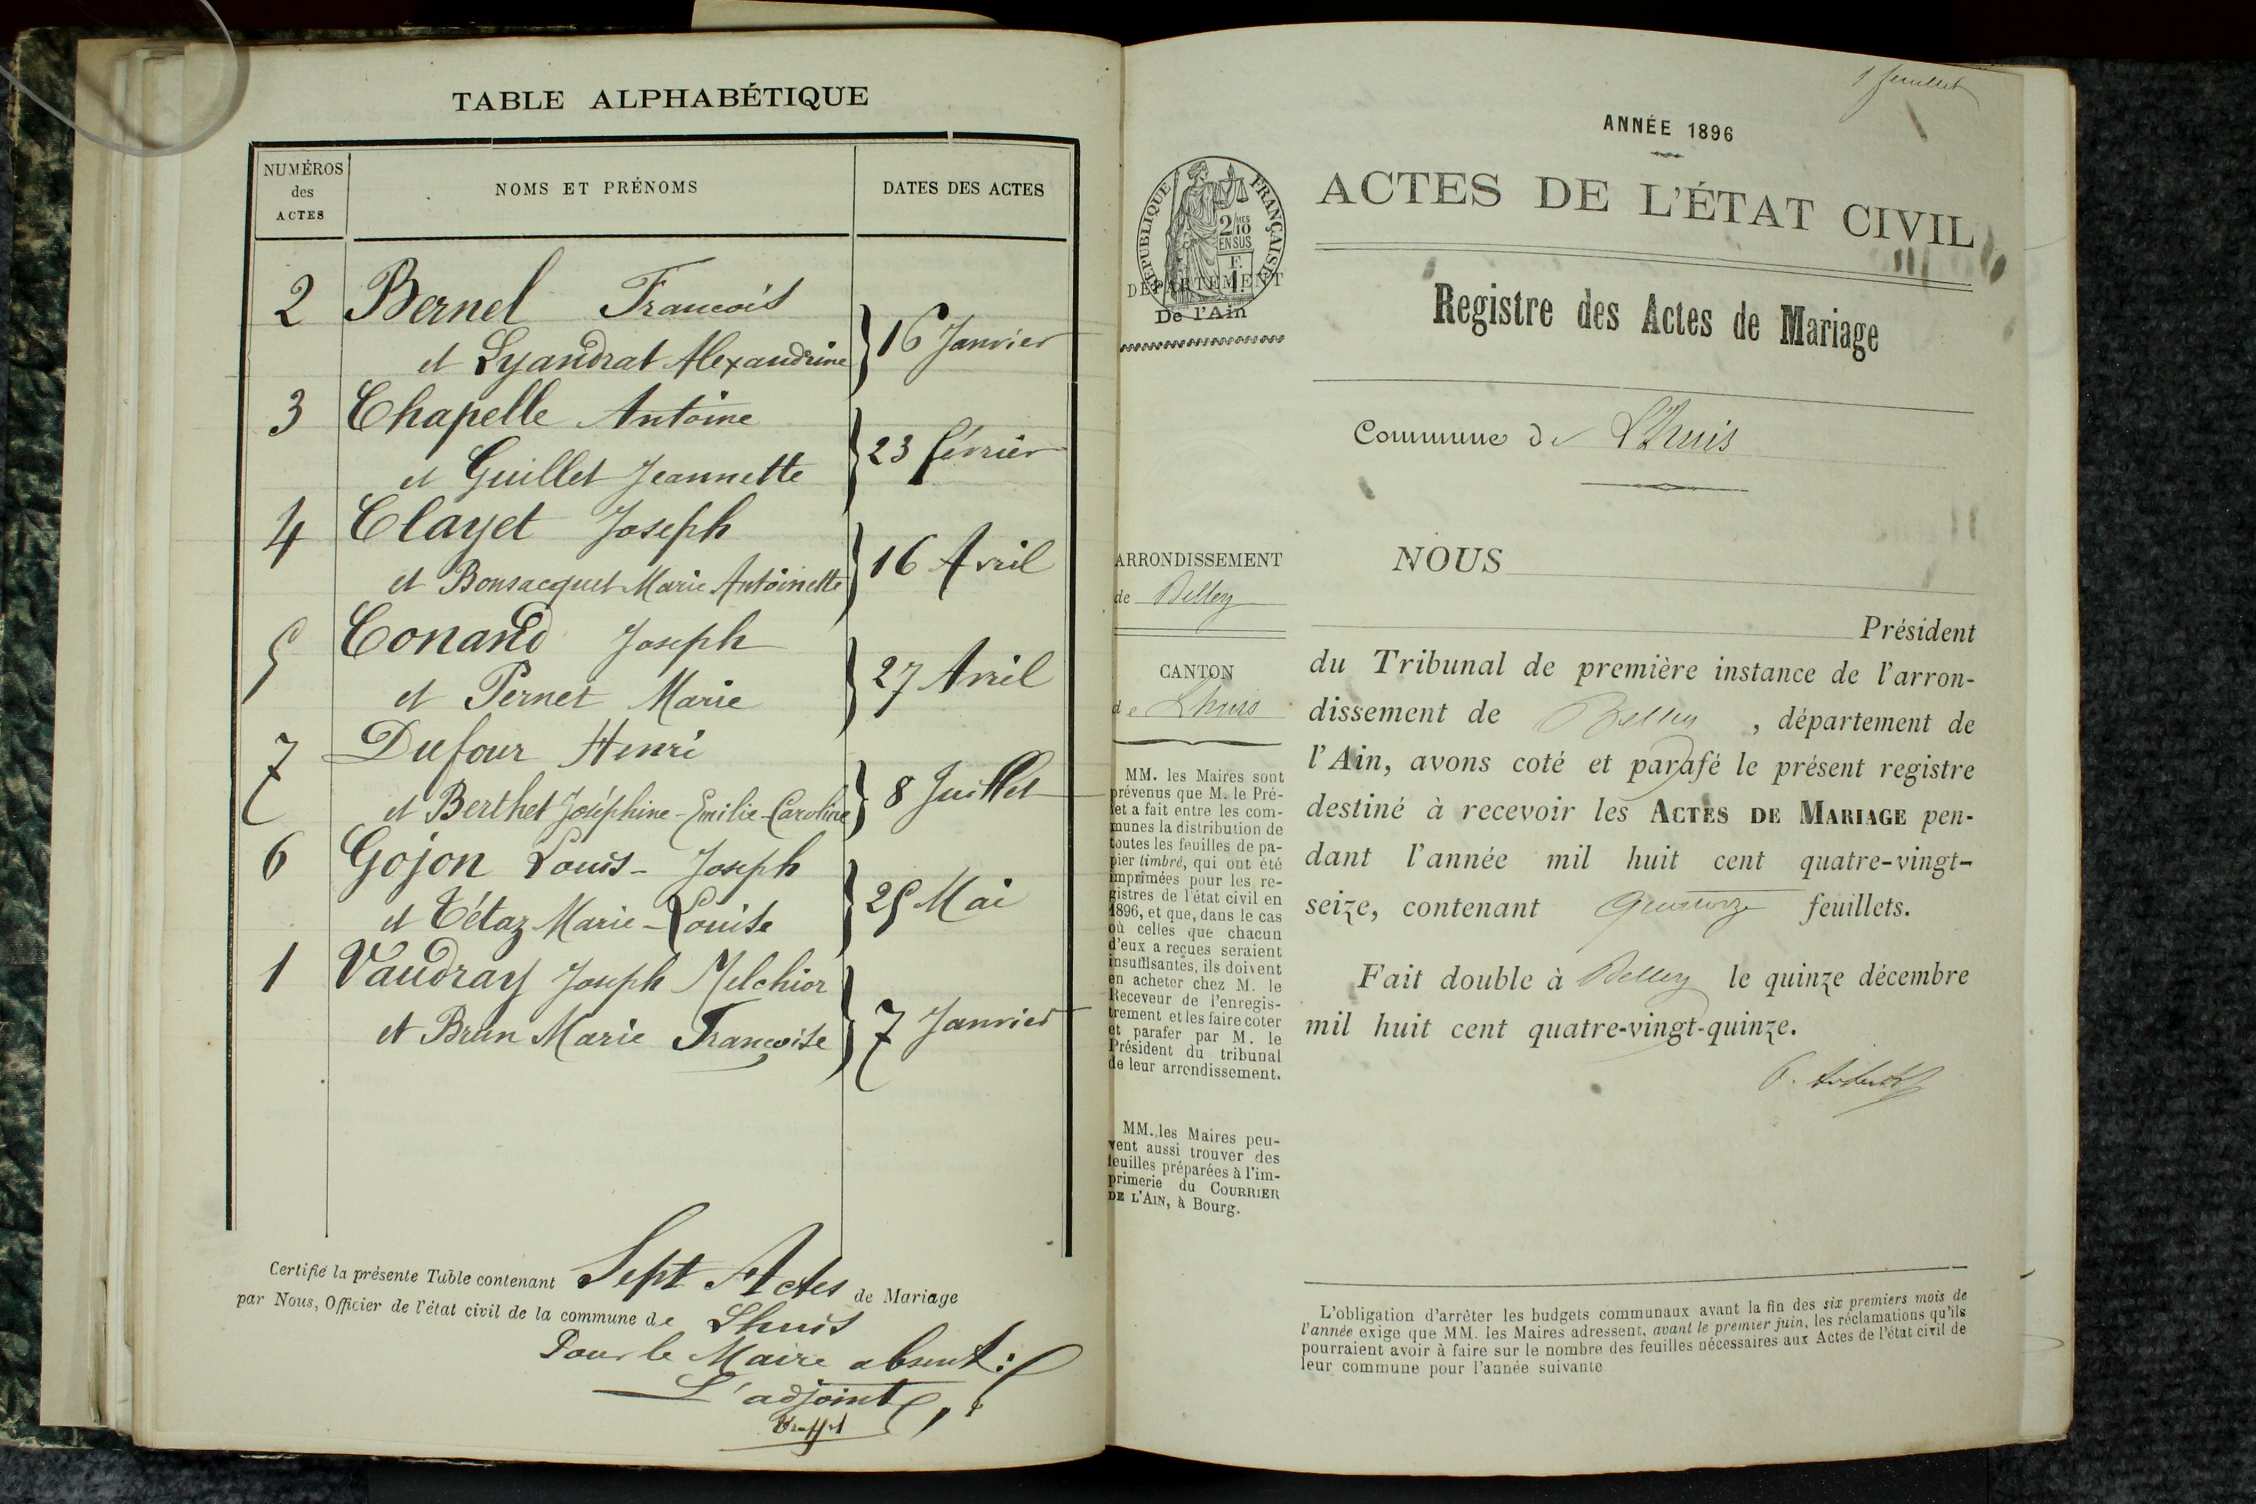 TABLE ALPHABÉTIQUE
NUMÉROS
des
ACTES
NOMS ET PRÉNOMS
DATES DES ACTES
2 Bernel François
et Lyandrat Alexandrine } 16 Janvier
3 Chapelle Antoine
et Guillet Jeannette } 23 février
4 Clayet Joseph
et Bonsacquet Marie Antoinette } 16 Avril
5 Conand Joseph
et Pernet Marie } 27 Avril
7 Dufour Henri
et Berthet Joséphine-Emilie-Caroline } 8 Juillet
6 Gojon Louis-Joseph
et Tétaz Marie-Louise } 25 Mai
1 Vaudray Joseph Melchior
et Brun Marie Françoise } 7 Janvier
Certifié la présente Table contenant Sept Actes de Mariage
par Nous, Officier de l'état civil de la commune de Lhuis
Pour le Maire absent :
L'adjoint,
1 feuillet
ANNÉE 1896
ACTES DE L'ÉTAT CIVIL
RÉPUBLIQUE FRANÇAISE
2/10 MES
EN SUS
F.
1
DÉPARTEMENT
De l'Ain
Registre des Actes de Mariage
Commune de L'huis
ARRONDISSEMENT
de Belley
CANTON
de Lhuis
MM. les Maires sont
prévenus que M. le Pré-
fet a fait entre les com-
munes la distribution de
toutes les feuilles de pa-
pier timbré, qui ont été
imprimées pour les re-
gistres de l'état civil en
1896, et que, dans le cas
où celles que chacun
d'eux a reçues seraient
insuffisantes, ils doivent
en acheter chez M. le
Receveur de l'enregis-
trement et les faire coter
et parafer par M. le
Président du tribunal
de leur arrondissement.
MM. les Maires peu-
vent aussi trouver des
feuilles préparées à l'im-
primerie du COURRIER
DE L'AIN, à Bourg.
NOUS
Président
du Tribunal de première instance de l'arron-
dissement de Belley, département de
l'Ain, avons coté et parafé le présent registre
destiné à recevoir les ACTES DE MARIAGE pen-
dant l'année mil huit cent quatre-vingt-
seize, contenant quatorze feuillets.
Fait double à Belley le quinze décembre
mil huit cent quatre-vingt-quinze.
L'obligation d'arrêter les budgets communaux avant la fin des six premiers mois de
l'année exige que MM. les Maires adressent, avant le premier juin, les réclamations qu'ils
pourraient avoir à faire sur le nombre des feuilles nécessaires aux Actes de l'état civil de
leur commune pour l'année suivante